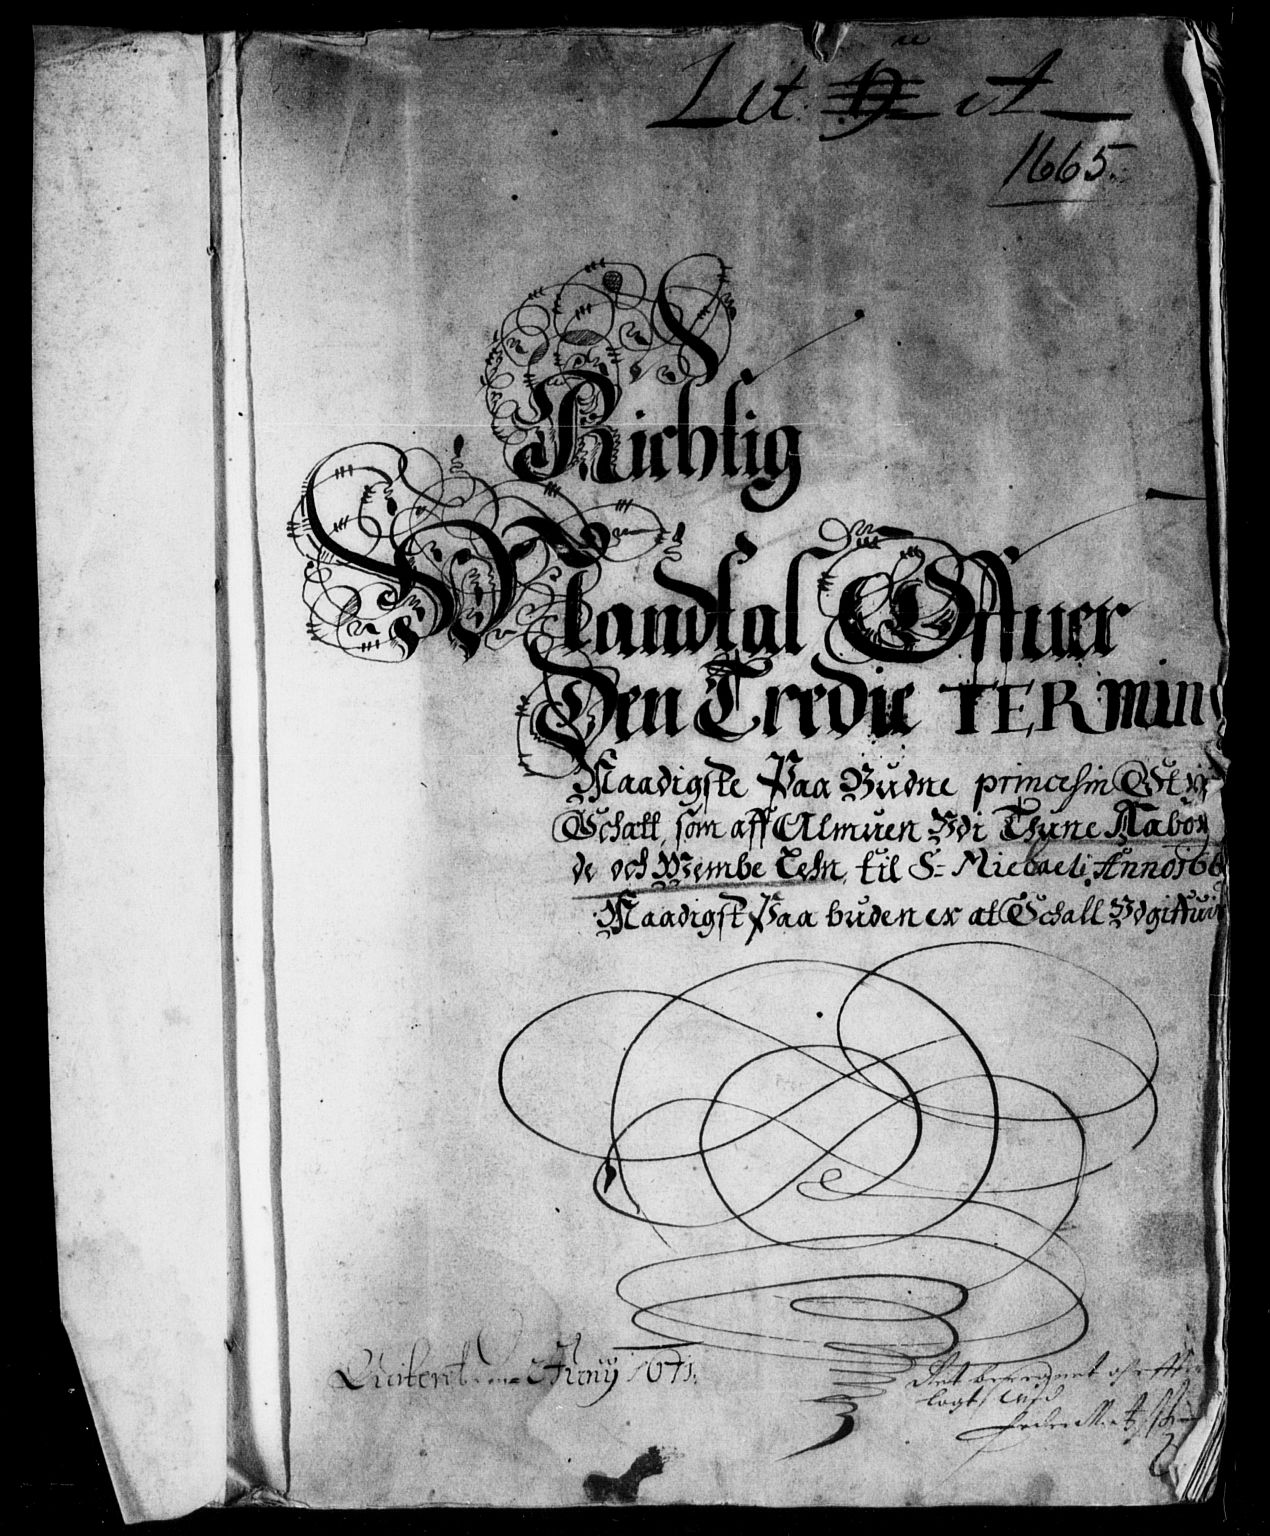 Lit: A
1665.
Richtig
Mandtal Offuer
Den Tredie TERmin
Naadigste Paa Budne princesin
Schatt, som aff Almuen Udi Thune Aaboy
de och Wembe Lehn, til S: Michaeli Anno 166
Naadigst Paa buden er at Schall Udgiffuis
Quiteret Junij 1671.
lagt